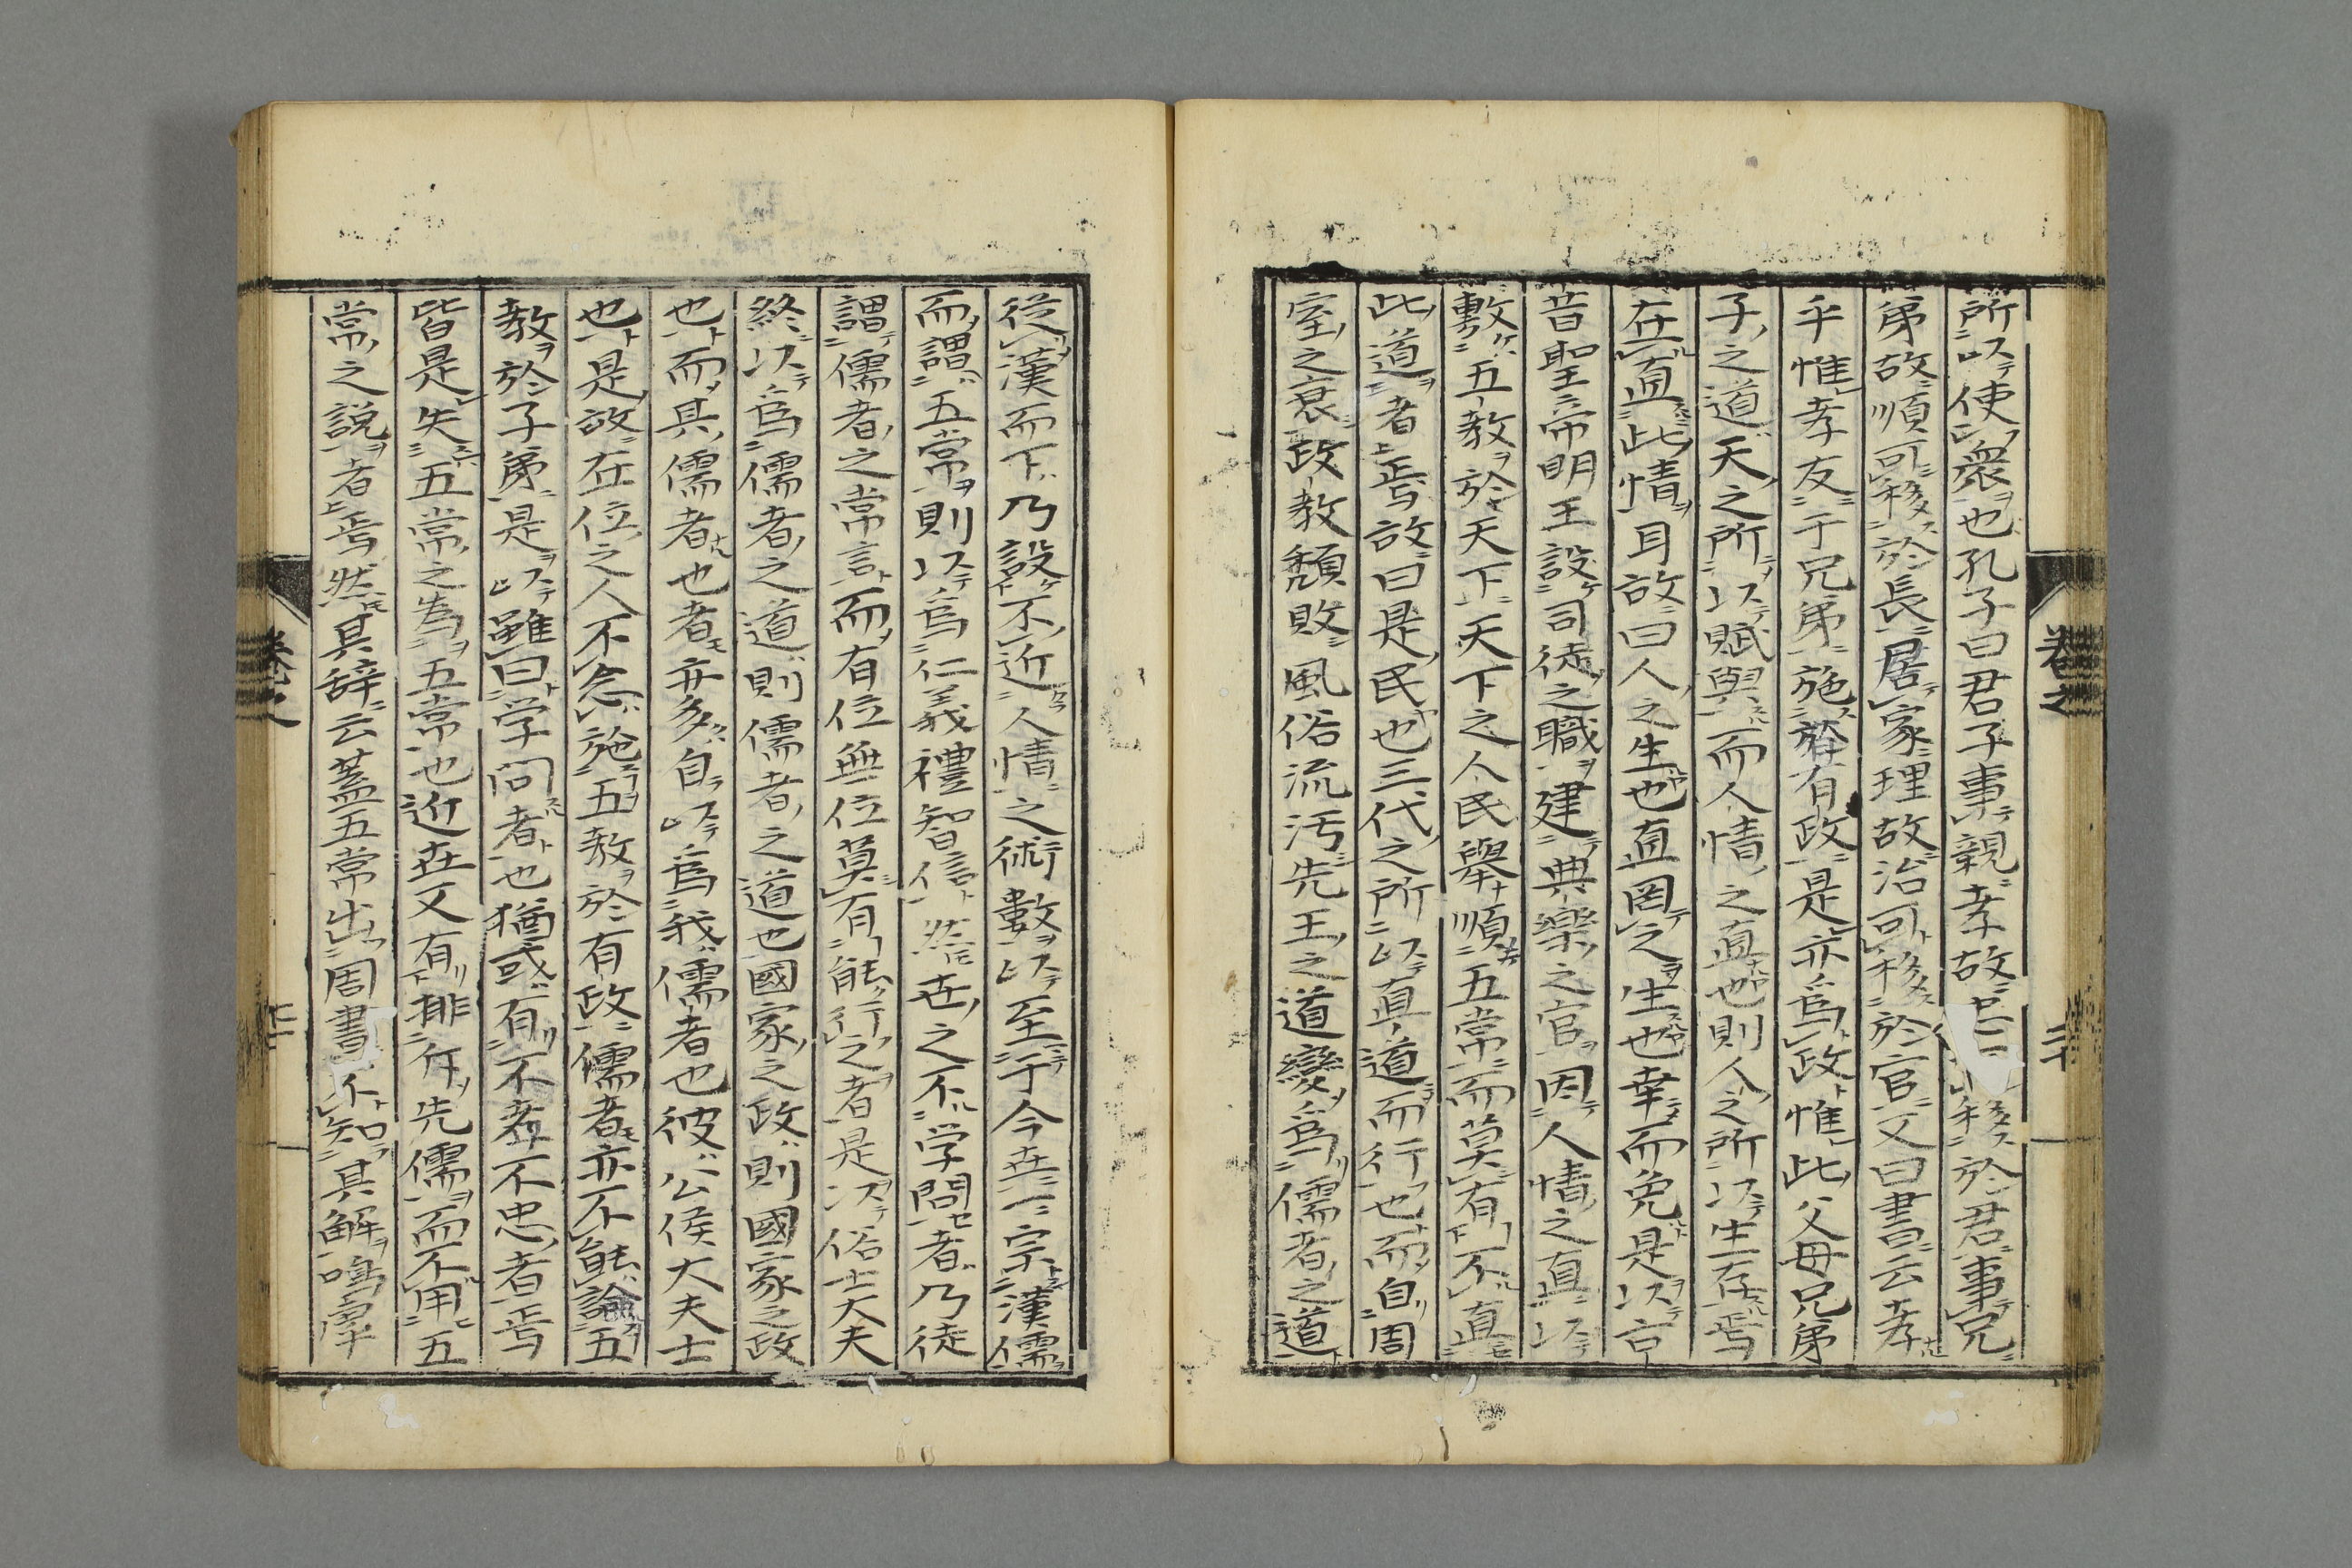 所以使衆也孔子曰君子事親孝故忠移於君事兄
弟故順可移於長居家理故治可移於官又曰書云孝
乎惟孝友于兄弟施於有政是亦爲政惟此父母兄弟
子之道天之所以賦與而人情之直也則人之所以生存焉
在直此情耳故曰人之生也直罔之生也幸而免是以古
昔聖帝明王設司徒之職建典樂之官因人情之直以
敷五教於天下天下之人民舉順五常而莫有不直
此道者焉故曰是民也三代之所以直道而行也而自周
室之衰政教頽敗風俗流汚先王之道變爲儒者之道
從漢而下乃設不近人情之術數以至于今世一宗漢儒
而謂五常則以爲仁義禮智信然世之不学問者乃徒
謂儒者之常言而有位無位莫有能行之者是以俗士大夫
終以爲儒者之道則儒者之道也國家之政則國家之政
也而其儒者也者亦多自以爲我儒者也彼公侯大夫士
也是故在位之人不念施五教於有政儒者亦不能諭五
教於子弟是以雖曰学問者也猶或有不孝不忠者焉
皆是失五常之爲五常也近世又有排斥先儒而不用五
常之説者焉然其辞云蓋五常出周書不知其解嗚虖
卷之
二十
卷之